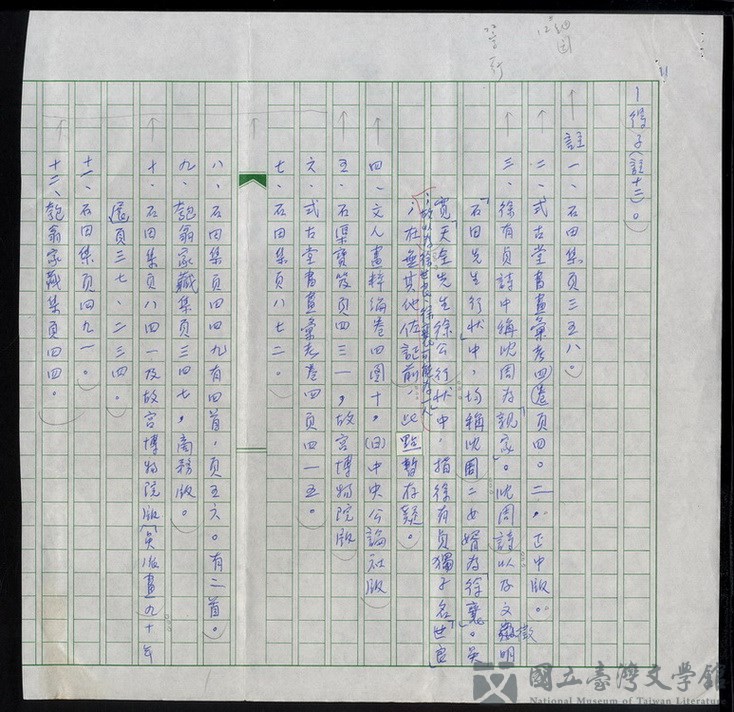 一得子(註十三)。
註一、石田集頁三五八。
二、式古堂書畫彙考四卷頁四〇二，正中版。
三、徐有貞詩中稱沈周為「親家」。沈周詩以及文徵明
「石田先生行狀」中，均稱沈周二女婿為徐襄。吳
寬「天全先生徐公行狀」中，指徐有貞獨子名「世良」
，在無其他佐証前，此點暫存疑。
四、文人畫粹編卷四圖十，(日)中央公論社版
五、石渠寶笈頁四三一，故宮博物院版
六、式古堂書畫彙考卷四頁四一五。
七、石田集頁八七二。
八、石田集頁四四九有四首，頁五六〇有二首。
九、匏翁家藏集頁三四七，商務版。
十、石田集頁八四一及故宮博物院版「吳派畫九十年
展」頁三七、二三四。
十一、石田集頁四九一。
十二、匏翁家藏集頁四四。
國立臺灣文學館
National Museum of Taiwan Literature